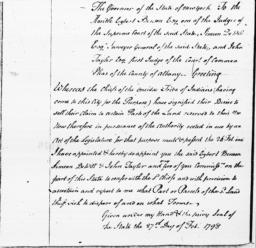 The Governor of the State of New York To the
Honble Egbert Benson Esq. one of the Judges of
the Supreme Court of the said State, Simeon DeWitt
Esq. Surveyor General of the said State, and John
Tayler Esq. first Judge of the Court of Common
Pleas of the County of Albany. Greeting
Whereas the Chiefs of the Oneida Tribe of Indians (having
come to this City for the Purpose) have signified their Desire to
sell their Claim to certain Part of the Land reserved to them
Now therefore in pursuance of the Authority vested in me by an
Act of the Legislature for that purpose made & passed the 26 Feb. inst
I have appointed & hereby do appoint you the said Egbert Benson
Simeon DeWitt & John Tayler
part of this State to confer with the sd Chiefs and with precision to
ascertain and report to me what Part or Parcels of the sd Land
they wish to dispose of and on what Terms.
Given under my Hand & the privy Seal of
the State the 27th Day of Feb. 1798